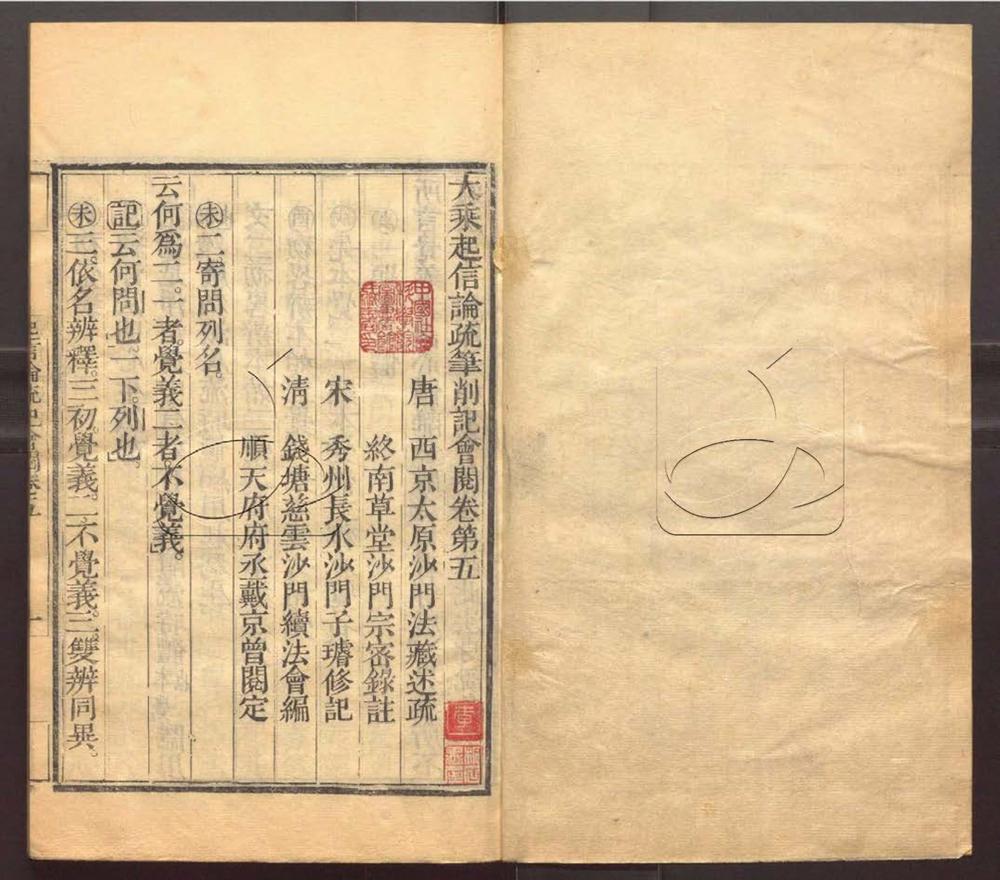 大乘起信論疏筆削記會閱卷第五
唐　西京太原沙門法藏述疏
終南草堂沙門宗密錄註
宋　秀州長水沙門子璿修記
清　錢塘慈雲沙門續法會編
順天府府丞戴京曾閱定
㊍二寄問列名。
云何爲二。一者。覺義二者。不覺義。
記云何問也。一下。列也。
三。依名辨釋。三初。覺義。二不覺義。三。雙辨同異。
起信論疏記會閱卷五
一